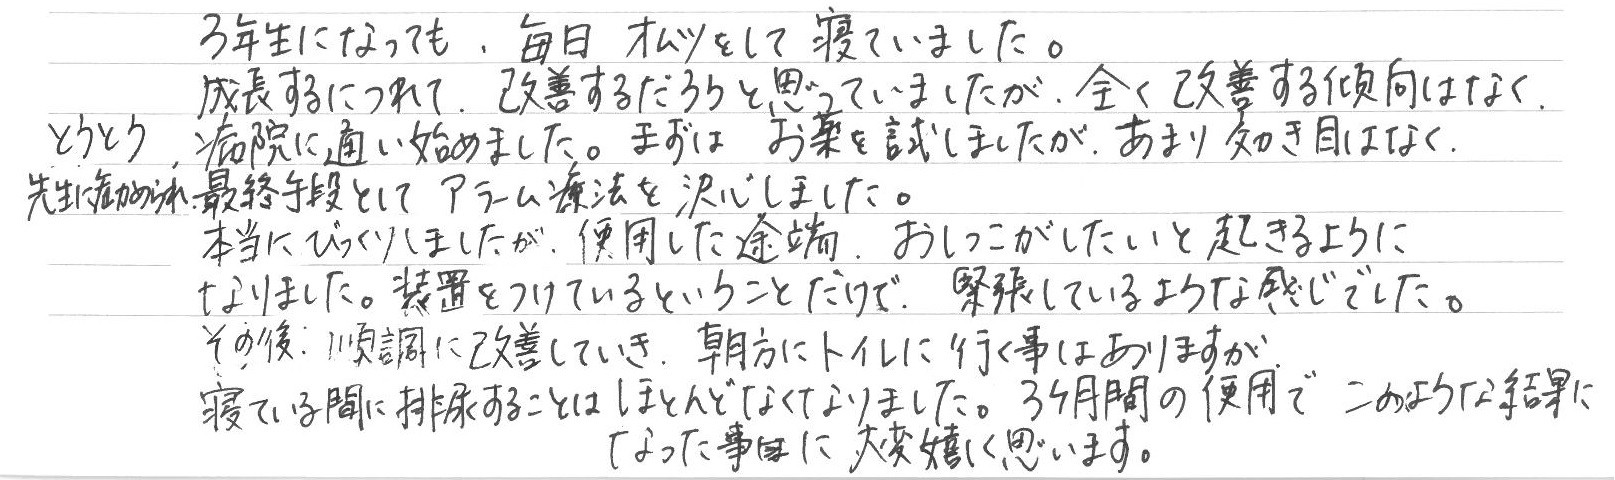 3年生になっても、毎日 オムツをして寝ていました。
成長するにつれて、改善するだろうと思っていましたが、全く改善する傾向はなく、
とうとう、病院に通い始めました。まずは お薬を試しましたが、あまり効き目はなく、
先生に勧められ、最終手段として アラーム療法を決心しました。
本当にびっくりしましたが、使用した途端、おしっこがしたいと起きるように
なりました。装置をつけているということだけで、緊張しているような感じでした。
その後、順調に改善していき、朝方にトイレに行く事はありますが、
寝ている間に排尿することはほとんどなくなりました。3ケ月間の使用で このような結果に
なった事に 大変嬉しく思います。